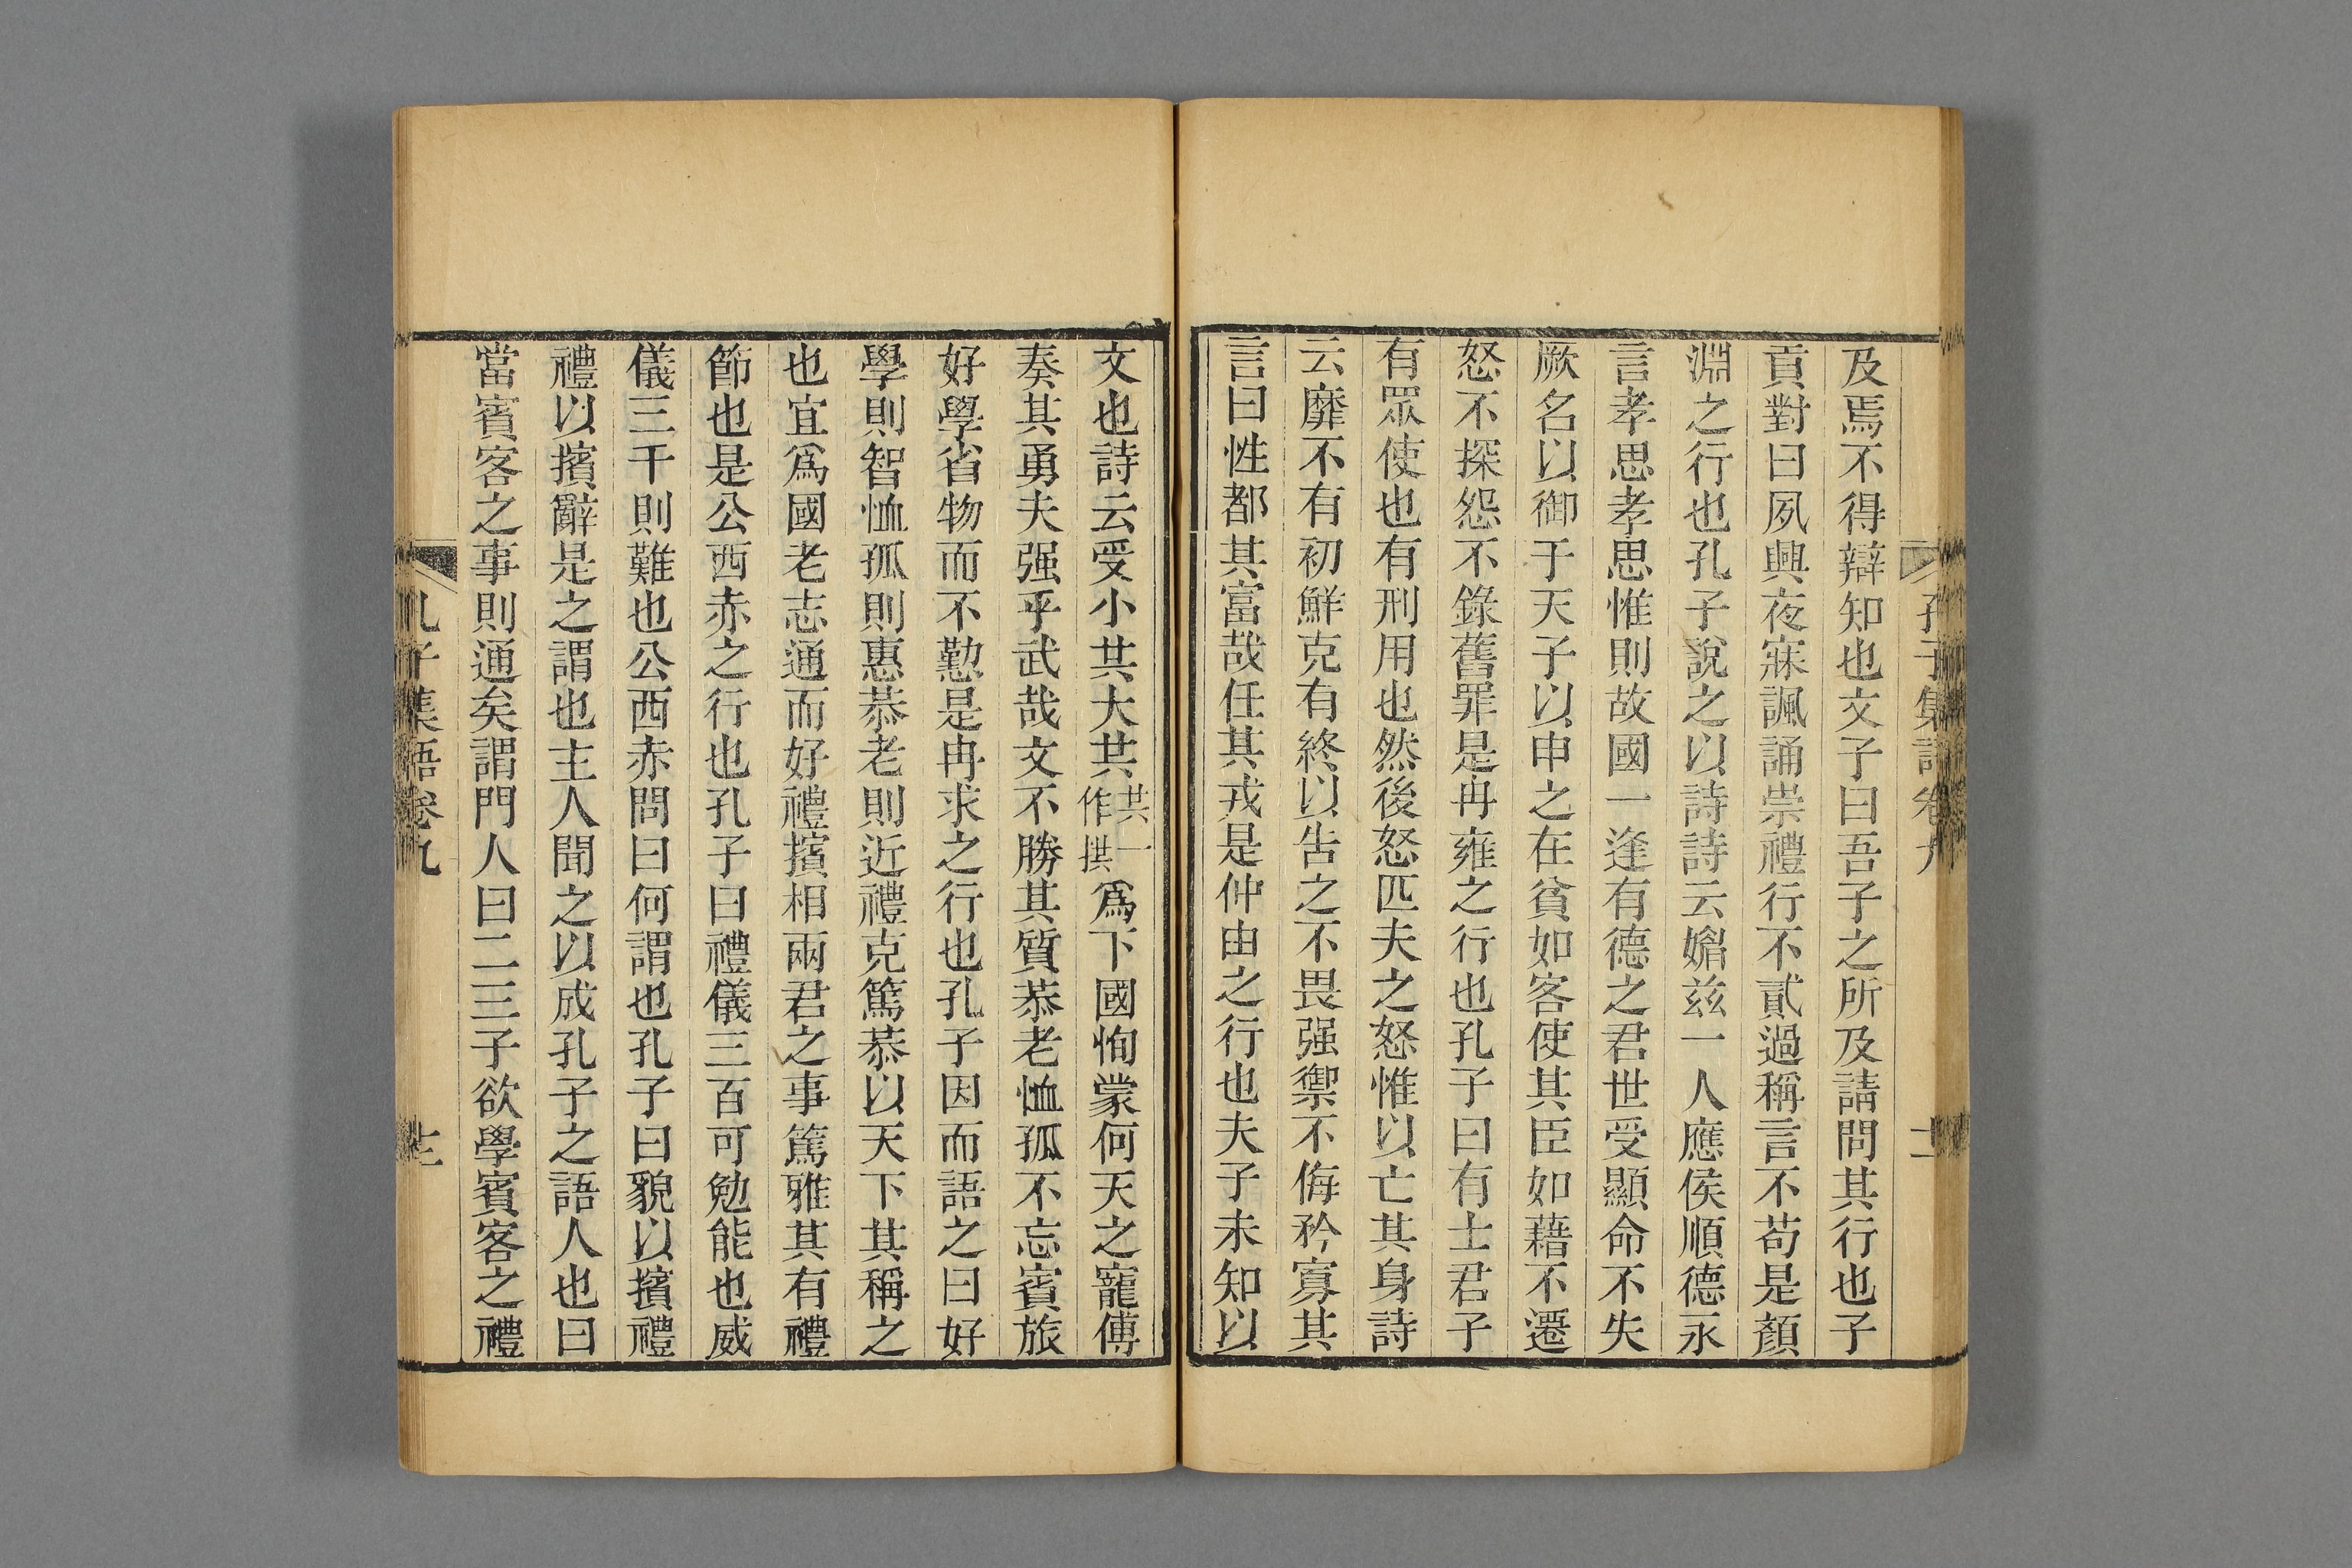 孔子集語卷九
及焉不得辯知也文子曰吾子之所及請問其行也子
貢對曰夙興夜寐諷誦崇禮行不貳過稱言不苟是顏
淵之行也孔子說之以詩詩云媚兹一人應侯順德永
言孝思孝思惟則故國一逢有德之君世受顯命不失
厥名以御于天子以申之在貧如客使其臣如藉不遷
怒不探怨不錄舊罪是冉雍之行也孔子曰有土君子
有眾使也有刑用也然後怒匹夫之怒惟以亡其身詩
云靡不有初鮮克有終以告之不畏强禦不侮矜寡其
言曰性都其富哉任其戎是仲由之行也夫子未知以
文也詩云受小共大共共一作拱爲下國恂蒙何天之寵傅
奏其勇夫强乎武哉文不勝其質恭老恤孤不忘賓旅
好學省物而不懃是冉求之行也孔子因而語之曰好
學則智恤孤則惠恭老則近禮克篤恭以天下其稱之
也宜爲國老志通而好禮擯相兩君之事篤雅其有禮
節也是公西赤之行也孔子曰禮儀三百可勉能也威
儀三千則難也公西赤問曰何謂也孔子曰貌以擯禮
禮以擯辭是之謂也主人聞之以成孔子之語人也曰
當賓客之事則通矣謂門人曰二三子欲學賓客之禮
孔子集語卷九